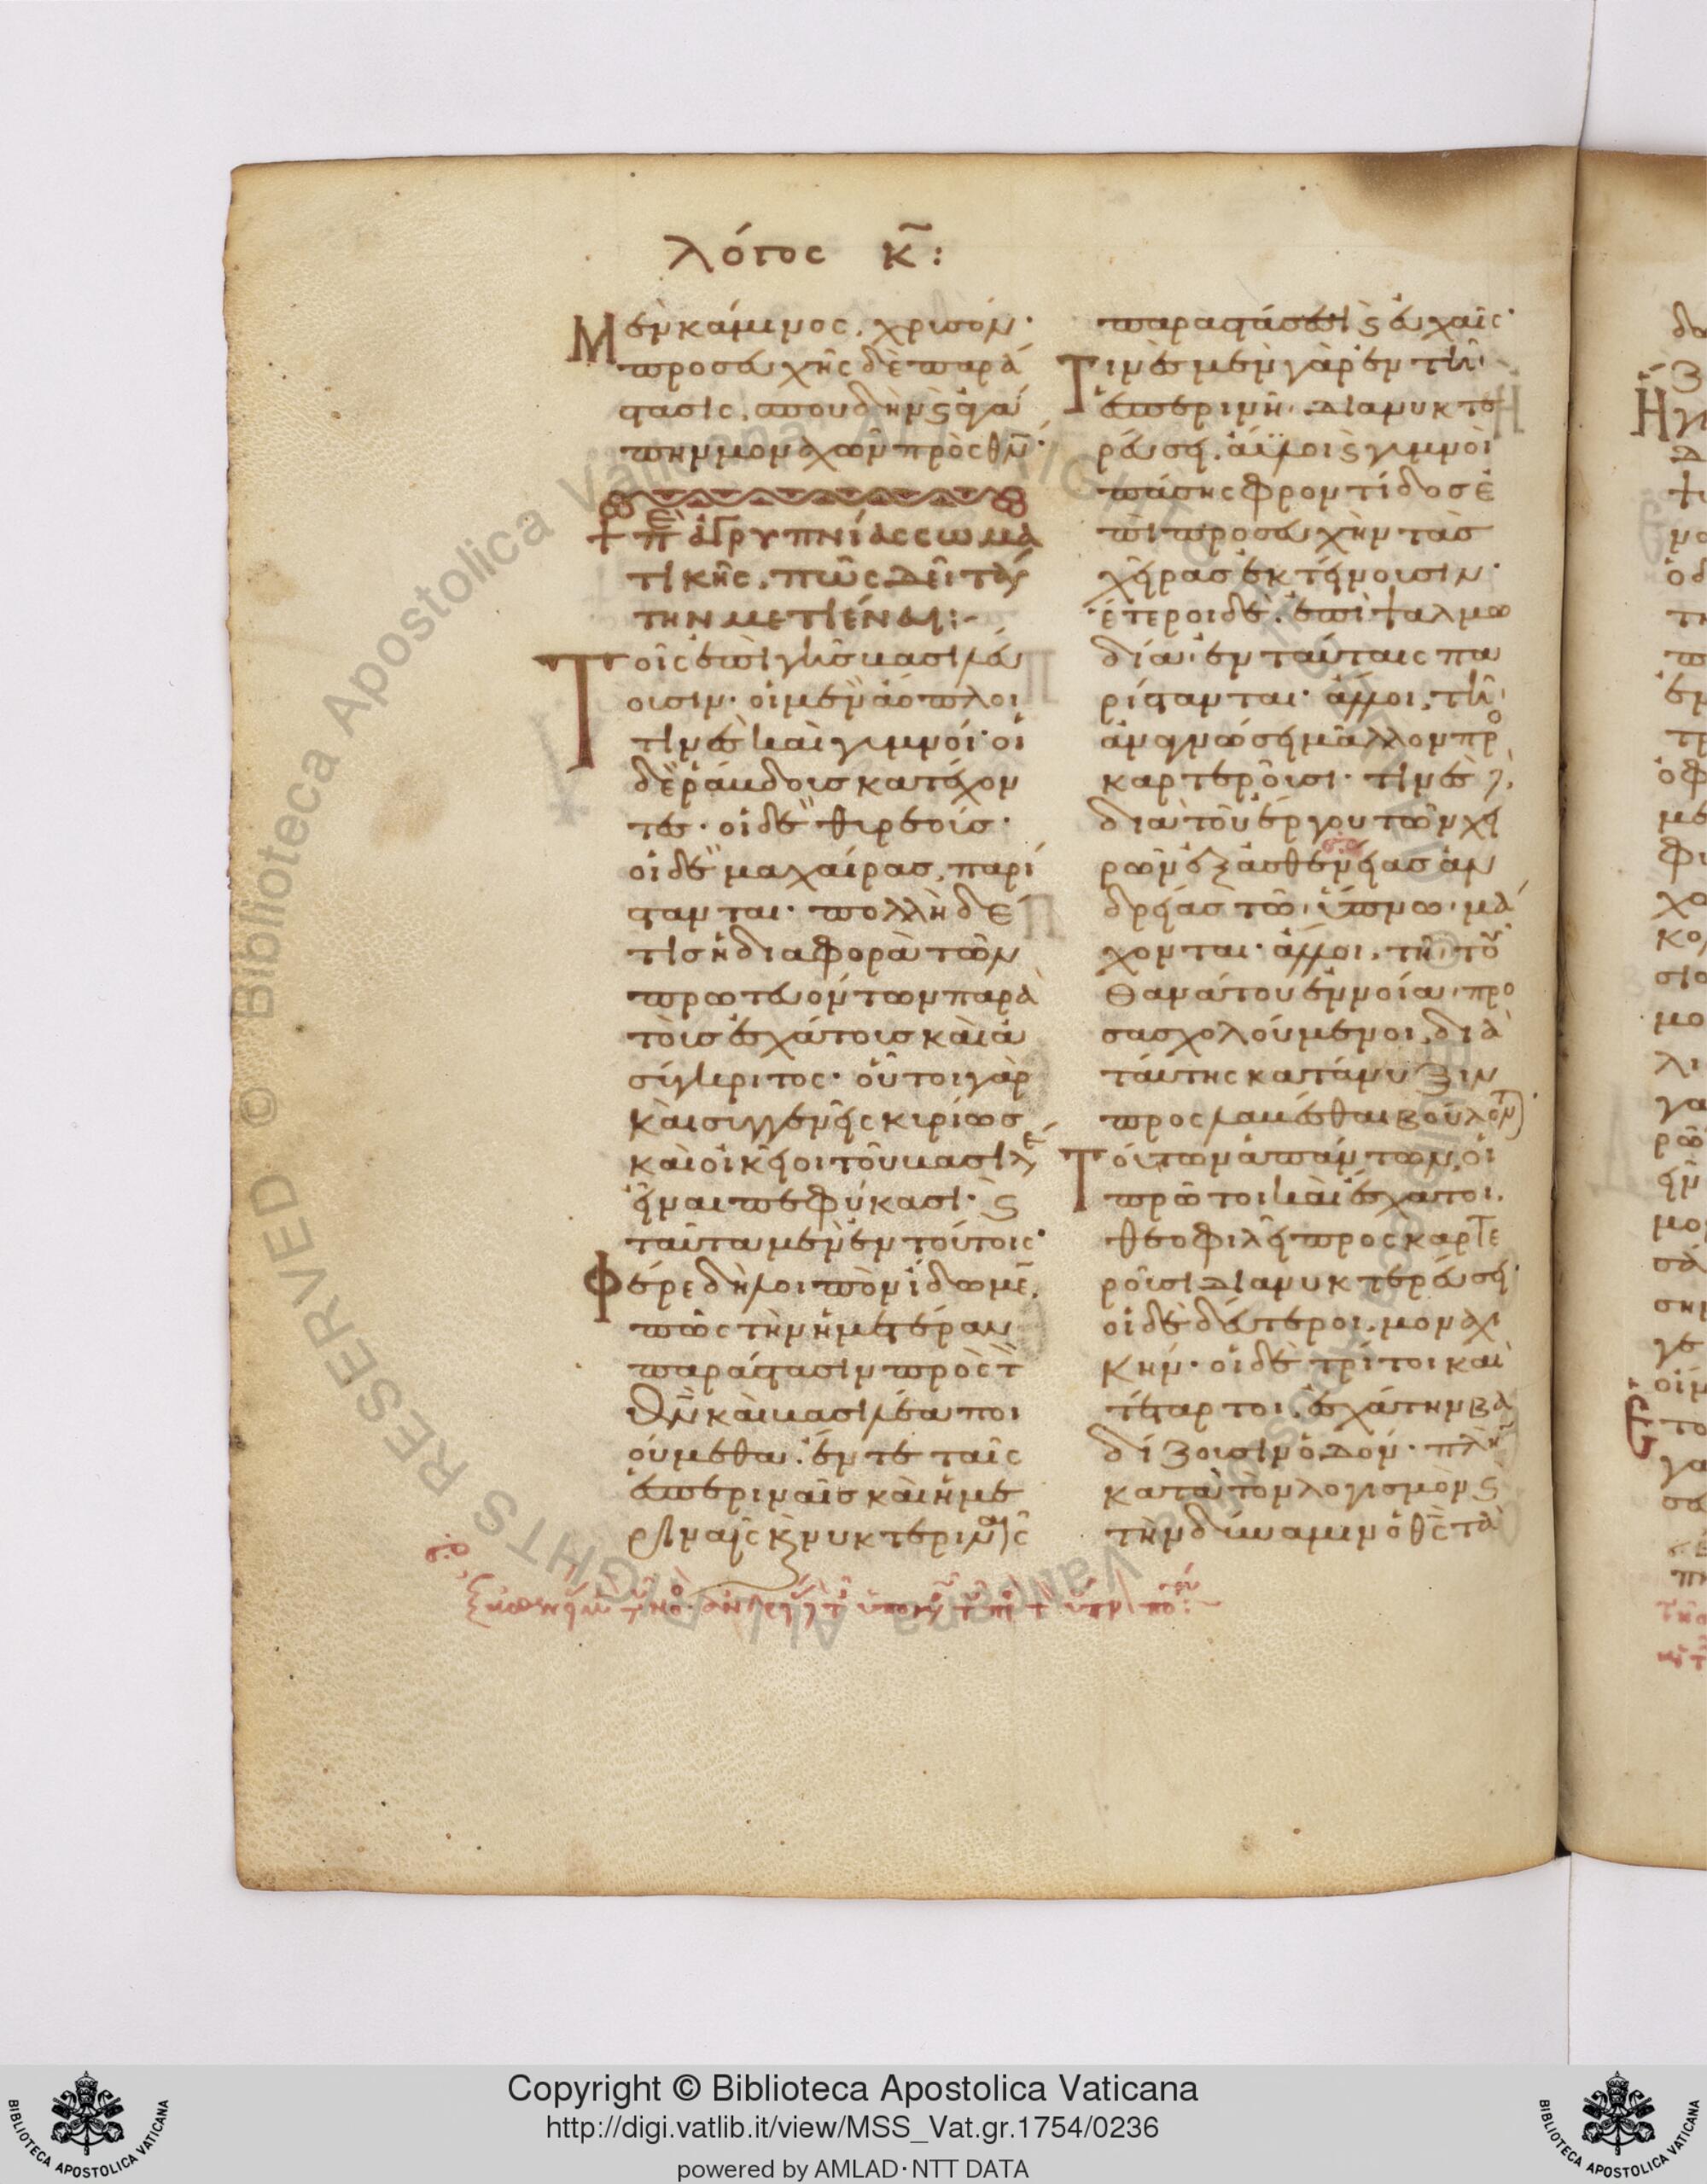 λόγος κ̄:
Μὲν κάμινος. χρυσόν·
προσευχῆς δὲ παρά
στασις, σπουδὴν ϗ ἀγά
πην μοναχῶν πρὸς θν̄·
+ πε ἀγρυπνίας σωμα
τικῆς. πῶς δεῖ ταύ
την μετιέναι:-
Τοῖς ἐπὶ γῆς βασιλεύ
ουσιν· οἱ μὲν ἄοπλοι
τινὲς καὶ γυμνοί· οἱ
δὲ ῥάβδους κατέχον
τες· οἱ δὲ θυρεούς·
οἱ δὲ μαχαίρας, παρί
στανται· πολλὴ δέ
τις ἡ διαφορὰ τῶν
πρωτευόντων παρὰ
τοὺς ἐσχάτους καὶ ἀ
σύγκριτος· οὗτοι γὰρ
καὶ συγγενεῖς κυρίως
καὶ οἰκεῖοι τοῦ βασιλέ
εἶναι πεφύκασι· ϗ
ταῦτα μὲν ἐν τούτοις·
Φέρε δὴ λοιπὸν ἴδωμε̄,
πῶς τὴν ἡμετέραν
παράστασιν πρὸς τ
θν̄ καὶ βασιλέα ποι
ούμεθα. ἔν τε ταῖς
ἑσπεριναῖς καὶ ἡμε
ριναῖς κ νυκτεριναῖς
παραστάσεσι ϗ εὐχαῖς·
Τινὲς μὲν γὰρ ἐν τῆ
ἑσπερινῆ. διανυκτε
ρεύσει. ἄϋλοι ϗ γυμνοὶ
πάσης φροντίδος ἐ
πὶ προσευχὴν τὰς
χεῖρας ἐκτείνουσιν·
ἕτεροι δὲ. ἐπὶ ψαλμω
δία. ἐν ταύταις πα
ρίστανται· ἄλλοι. τῆ
ἀναγνώσει μᾶλλον προ
καρτεροῦσι· τινὲς
διὰ τοῦ ἔργου τῶν χει
ρῶν ἐξ ἀσθενείας ἀν
δρείας τῶ ὕπνω. μά
χονται· ἄλλοι. τῆ τοῦ
θανάτου ἐννοία. προ
σασχολούμενοι, διὰ
ταύτης κατάνυξιν
προσλαβέσθαι βούλοντ
Τούτων ἁπάντων, οἱ
πρῶτοι καὶ ἔσχατοι.
θεοφιλεῖ προσκαρτε
ροῦσι διανυκτερεύσει·
οἱ δὲ δεύτεροι. μοναχι
κήν· οἱ δὲ τρίτοι καὶ
τέταρτοι. ἐσχάτην βα
δίζουσιν ὁδόν· πλὴν
κατὰ τὸν λογισμὸν ϗ
τὴν δύναμιν ὁ θς τὰ